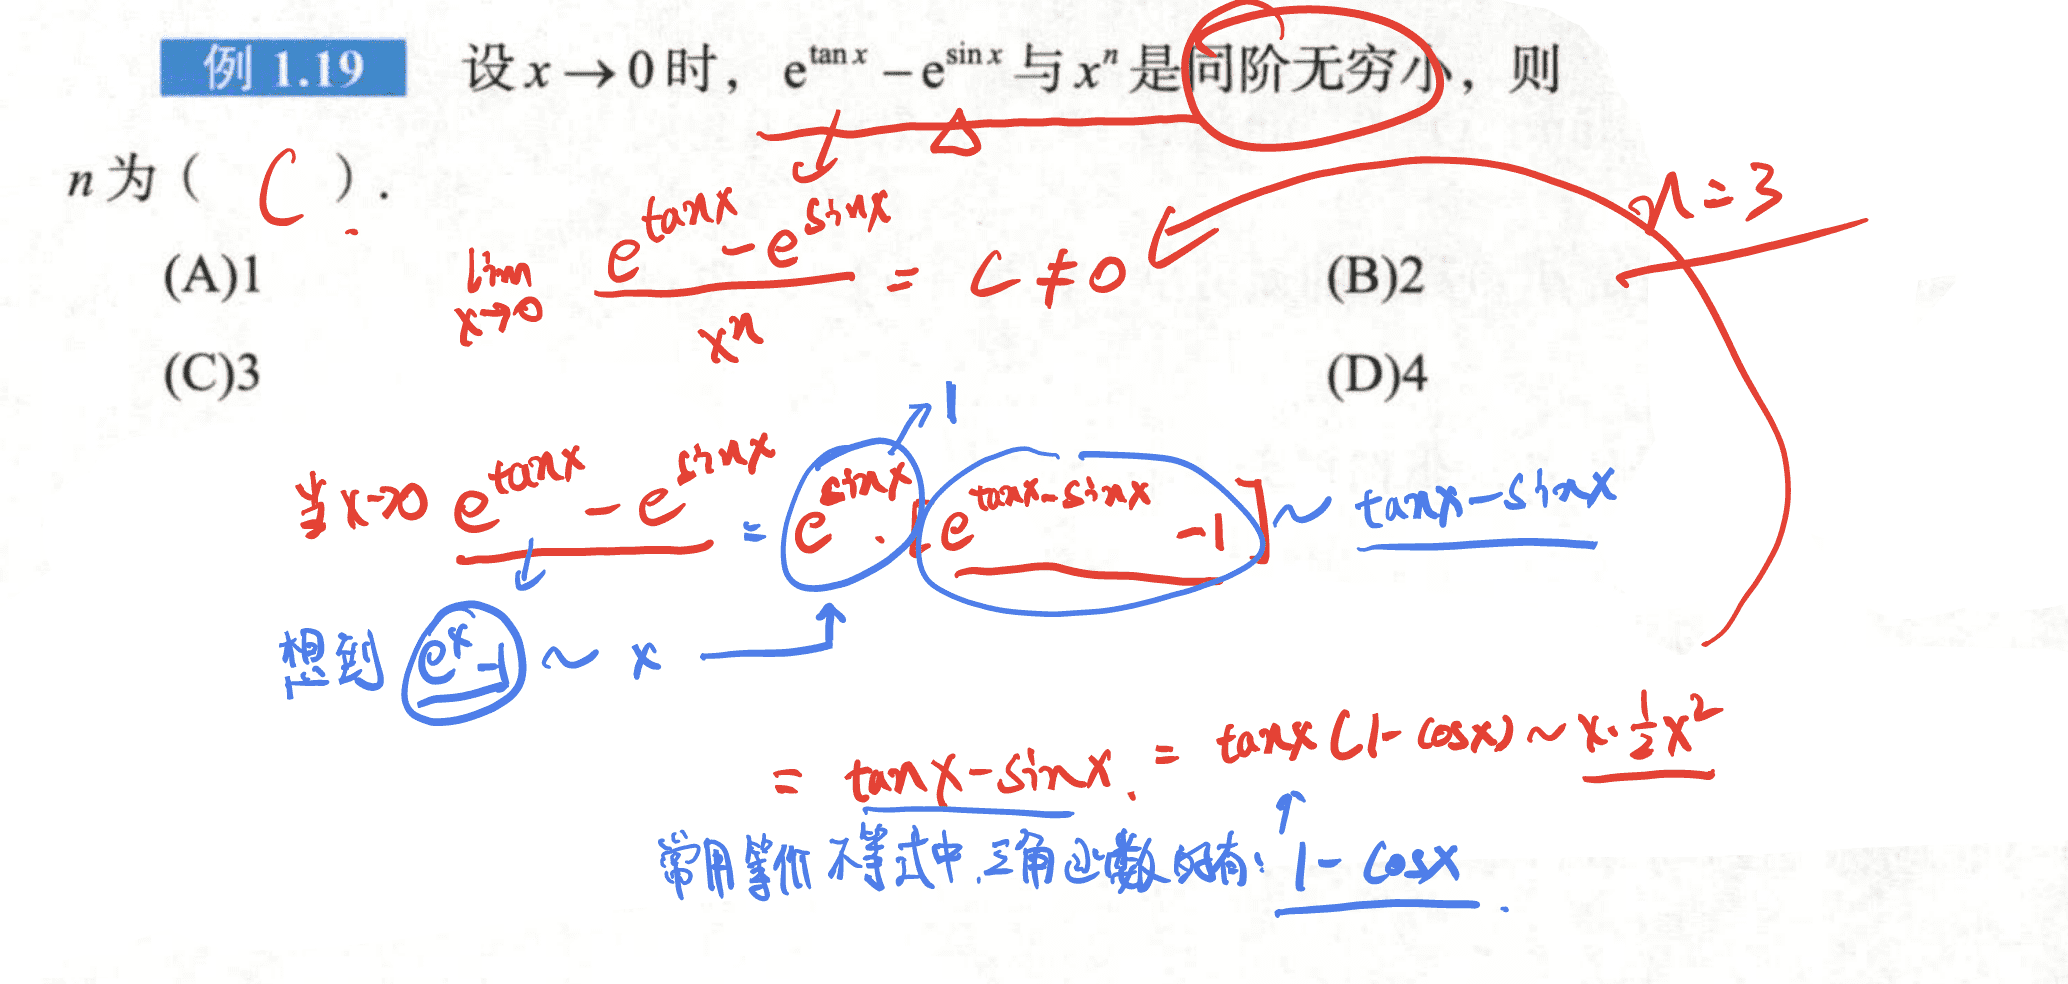 例 1.19 设 x → 0 时，e^{tan x} − e^{sin x} 与 x^n 是同阶无穷小，则
n 为（ C ）.
n=3
lim_{x→0} (e^{tanx} − e^{sinx}) / x^n = C ≠ 0
(A)1 (B)2
(C)3 (D)4
1
当 x→0 e^{tanx} − e^{sinx} = e^{sinx} · [e^{tanx−sinx} −1] ~ tanx−sinx
想到 e^x −1 ~ x
= tanx−sinx. = tanx(1−cosx) ~ x·½x²
常用等价不等式中,三角函数的有: 1−cosx.